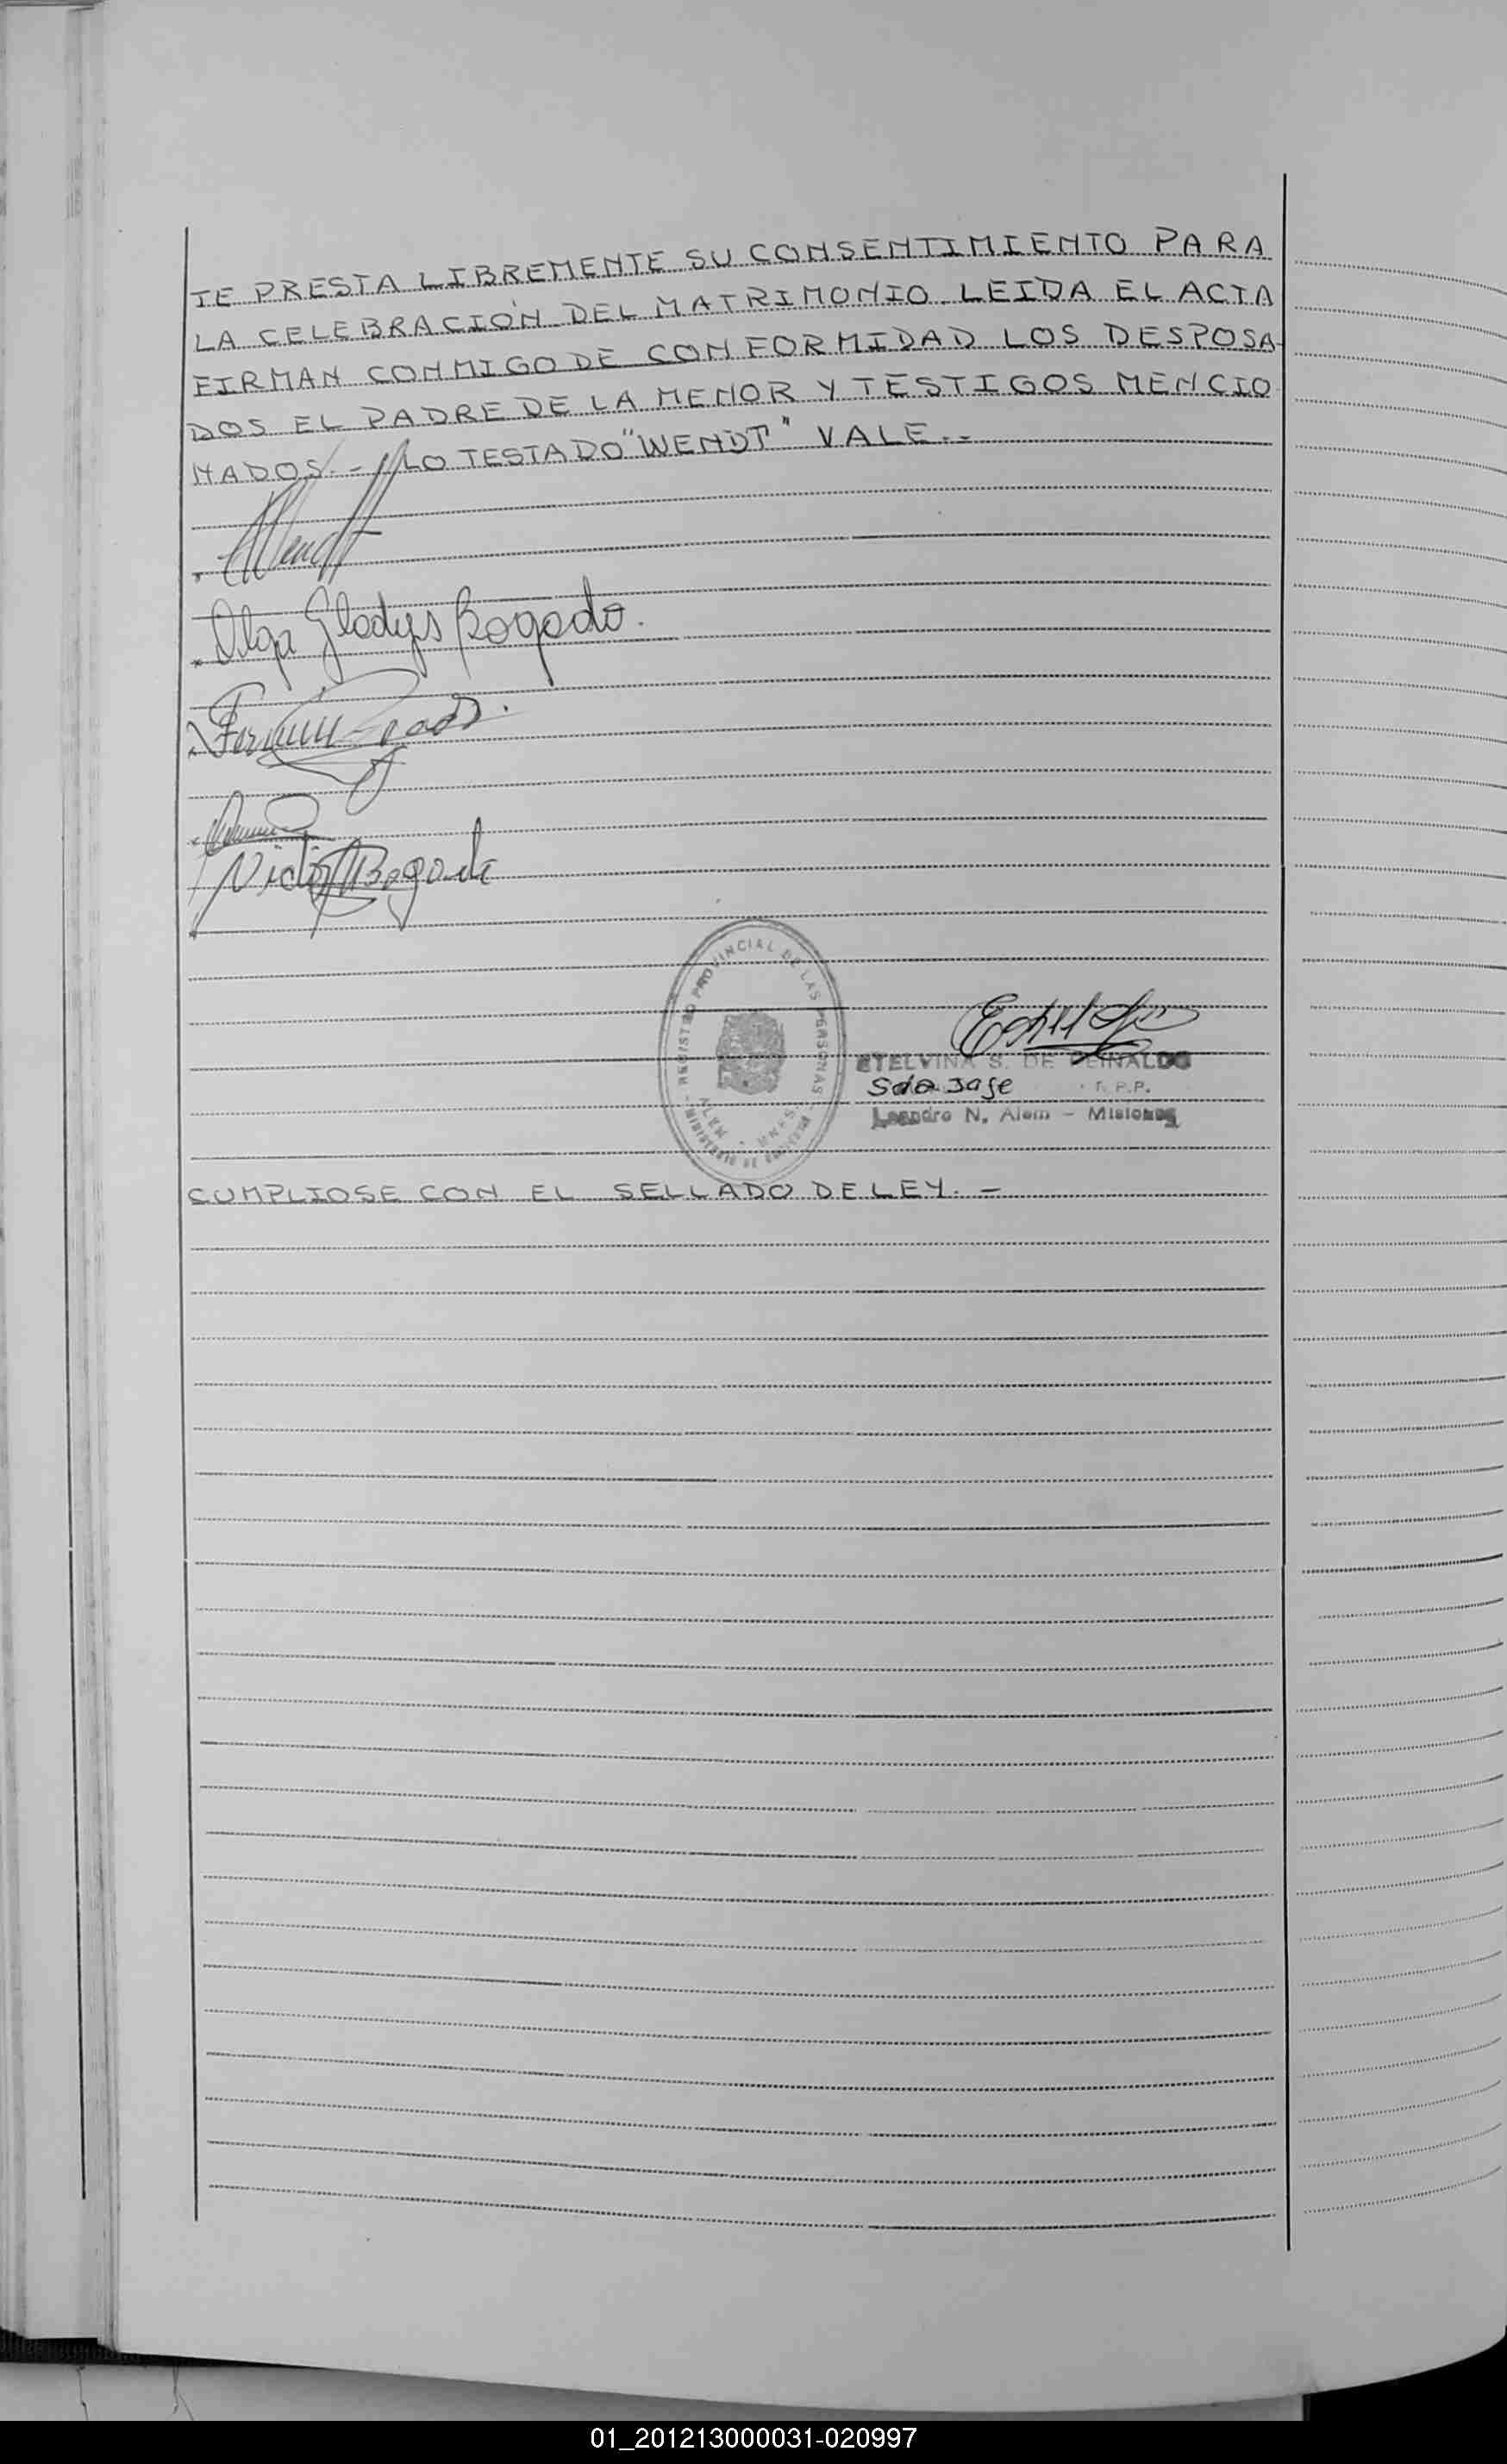 TE PRESTA LIBREMENTE SU CONSENTIMIENTO PARA
LA CELEBRACIÓN DEL MATRIMONIO. LEIDA EL ACTA
FIRMAN CONMIGO DE CONFORMIDAD LOS DESPOSA-
DOS EL PADRE DE LA MENOR Y TESTIGOS MENCIO
NADOS.- LO TESTADO "WENDT" VALE.-
Wendt
Olga Gladys Bogado.
REGISTRO PROVINCIAL DE LAS PERSONAS
ALEM - MNES.
MINISTERIO DE
ETELVINA S. DE REINALDO
R.P.P.
Leandro N. Alem - Misiones
CUMPLIOSE CON EL SELLADO DE LEY.-
01_201213000031-020997